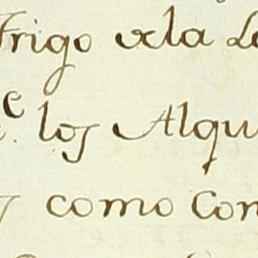 Trigo de la
los Alqu
como Con